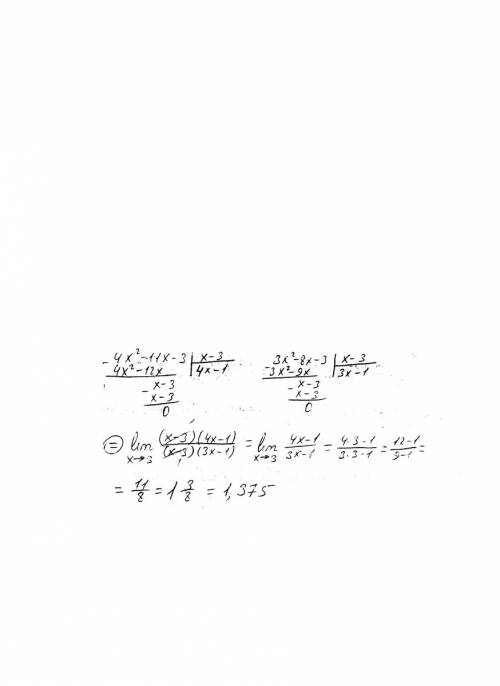 - 4x²-11x-3 | x-3      3x²-8x-3 | x-3
4x²-12x | 4x-1      -3x²-9x | 3x-1
- x-3      - x-3
x-3      x-3
0      0
⊜ lim x→3 (x-3)(4x-1)/(x-3)(3x-1) = lim x→3 4x-1/3x-1 = 4·3-1/3·3-1 = 12-1/9-1 =
= 11/8 = 1 3/8 = 1,375